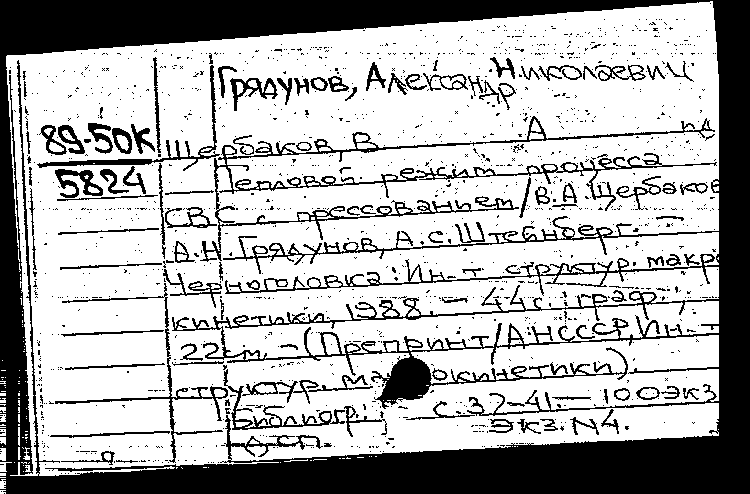 Грядунов, Александр Николаевич
89-50К
5824
Щербаков, В А
Тепловой режим процесса
СВС с прессованием/В.А.Щербаков
А.Н.Грядунов, А.С.Штейнберг. –
Черноголовка: Ин-т структур. макро
кинетики, 1988. – 44 с.: граф.;
22 см. – (Препринт/АН СССР, Ин-т
структур. макрокинетики).
Библиогр.: с.37-41. – 100 экз
Экз. N4.